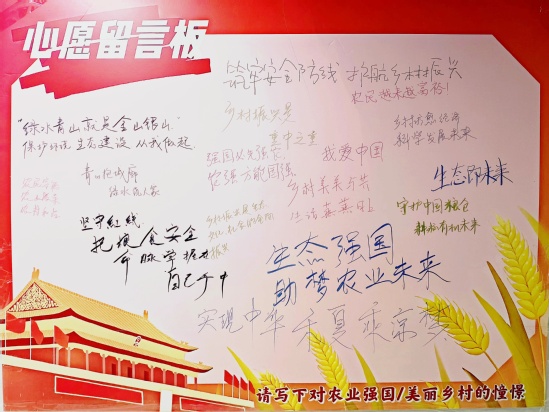 心愿留言板
筑牢安全防线 护航乡村振兴
农民越来越富裕!
乡村振兴是
重中之重
"绿水青山就是金山银山"
保护环境 生态建设 从我做起
强国必先强农
农强方能国强
我爱中国
科学发展未来
生态即未来
乡村美美与共
生活蒸蒸日上
守护中国粮仓
坚守红线
把粮食安全
命脉掌握在
自己手中
生态强国
助梦农业未来
实现中华禾夏乘凉梦
请写下对农业强国/美丽乡村的憧憬